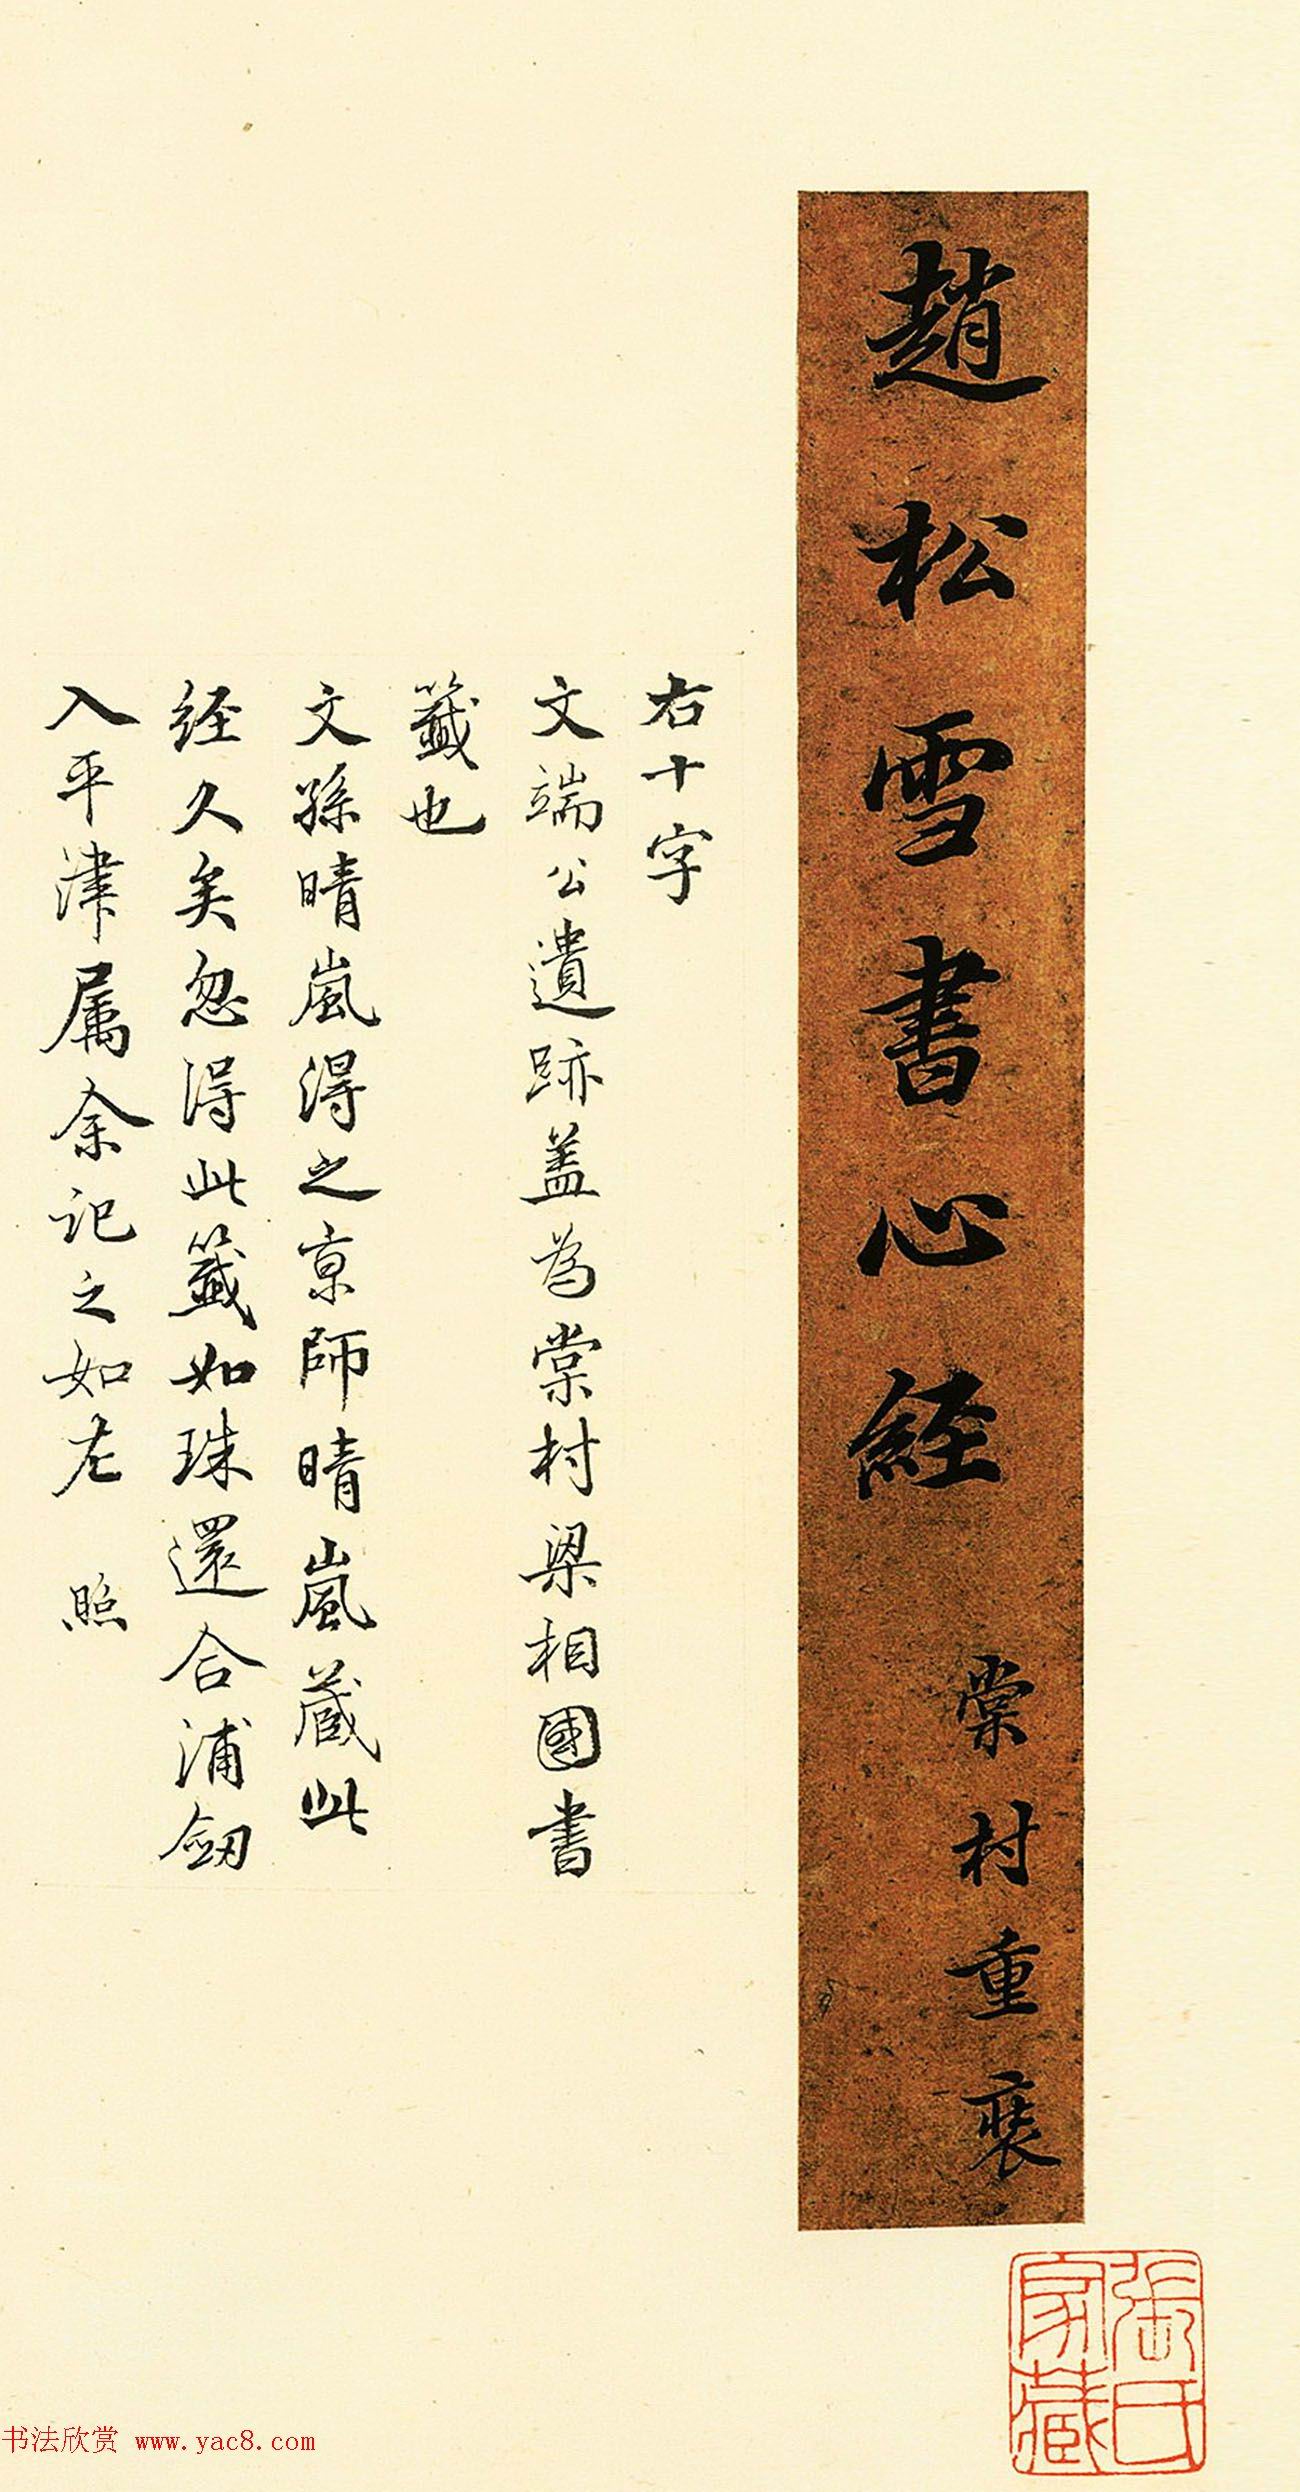 趙松雪書心經
棠村重裝
右十字
文端公遺跡蓋為棠村梁相國書
籤也
文孫晴嵐得之京師晴嵐蔵此
经久矣忽得此籤如珠還合浦劔
入平津属余記之如左 照
張氏家藏
书法欣赏 www.yac8.com